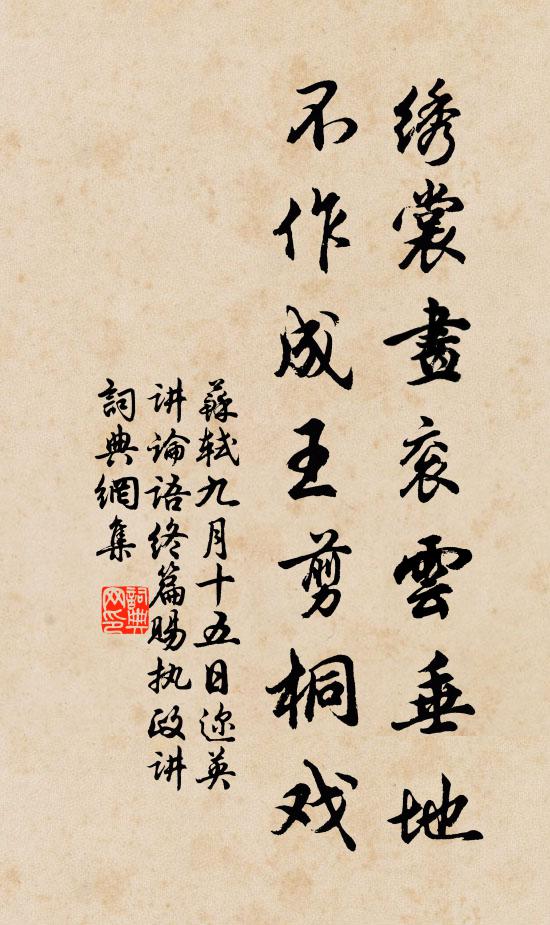 绣裳畫衮雲垂地
不作成王剪桐戏
蘇轼九月十五日迩英
讲论语终篇赐执政讲
詞典網集
詞典网印